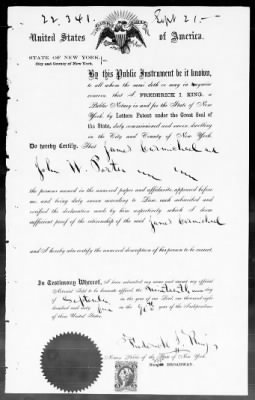 22,341. Sept 21.—
United States of America.
STATE OF NEW YORK,
City and County of New York,
By this Public Instrument be it known,
to all whom the same doth or may in anywise
concern that I FREDERICK I. KING, a
Public Notary in and for the State of New
York by Letters Patent under the Great Seal of
the State, duly commissioned and sworn dwelling
in the City and County of New York
Do hereby Certify, That James Carmichael and
John W. Porter
the persons named in the annexed paper and affidavits appeared before
me and being duly sworn according to Law each subscribed and
verified the declaration made by him respectively which I deem
sufficient proof of the citizenship of the said James Carmichael
and I hereby also certify the annexed description of his person to be correct.
In Testimony Whereof, I have subscribed my name and caused my official
Notarial Seal to be hereunto affixed, the nineteenth day
of September in the year of our Lord, one thousand eight
hundred and sixty five in the 90th year of the Independence
of these United States.
Frederick I. King
Notary Public of the State of New York.
BROADWAY.